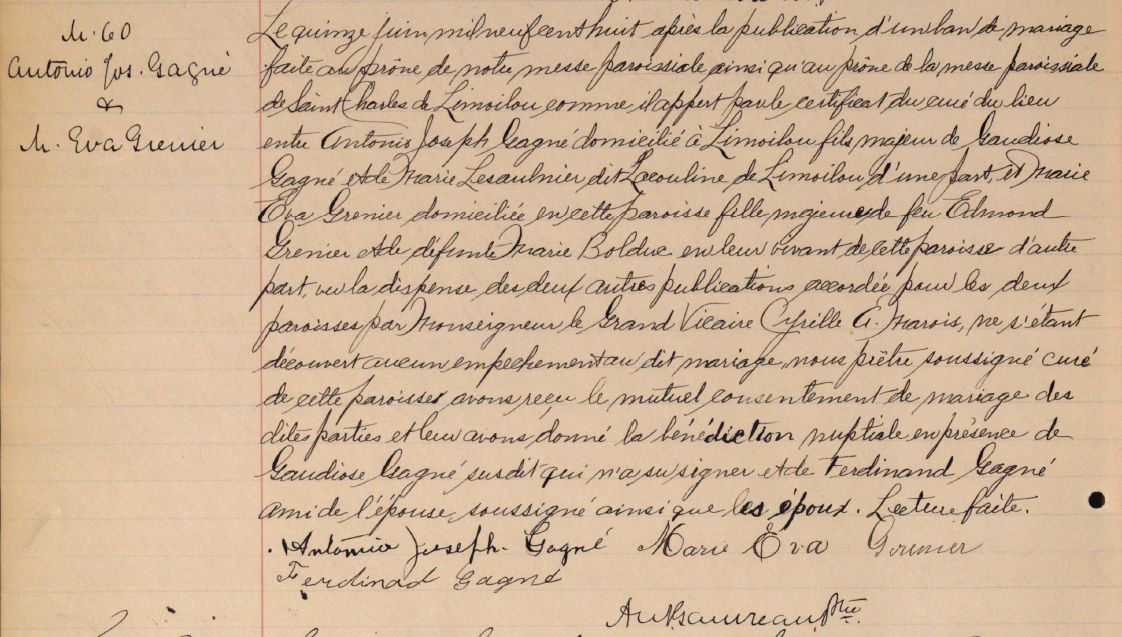 M. 60
Antonio Jos. Gagné
&
M. Eva Grenier
Le quinze juin mil neuf cent huit après la publication d'un ban de mariage
faite au prône de notre messe paroissiale ainsi qu'au prône de la messe paroissiale
de Saint Charles de Limoilou comme il appert par le certificat du curé du lieu
entre Antonio Joseph Gagné domicilié à Limoilou fils majeur de Gaudiose
Gagné et de Marie Lesaulnier dit Lacouline de Limoilou d'une part, et Marie
Eva Grenier domiciliée en cette paroisse fille majeure de feu Edmond
Grenier et de défunte Marie Bolduc en leur vivant de cette paroisse d'autre
part, vu la dispense des deux autres publications accordée pour les deux
paroisses par Monseigneur le Grand Vicaire Cyrille A. Marois, ne s'étant
découvert aucun empechement au dit mariage, nous prêtre soussigné curé
de cette paroisse avons reçu le mutuel consentement de mariage des
dites parties et leur avons donné la bénédiction nuptiale en présence de
Gaudiose Gagné susdit qui n'a su signer et de Ferdinand Gagné
ami de l'épouse, soussigné ainsi que les époux. Lecture faite.
Antonio Joseph. Gagné Marie Eva Grenier
Ferdinad Gagné
Ptre.